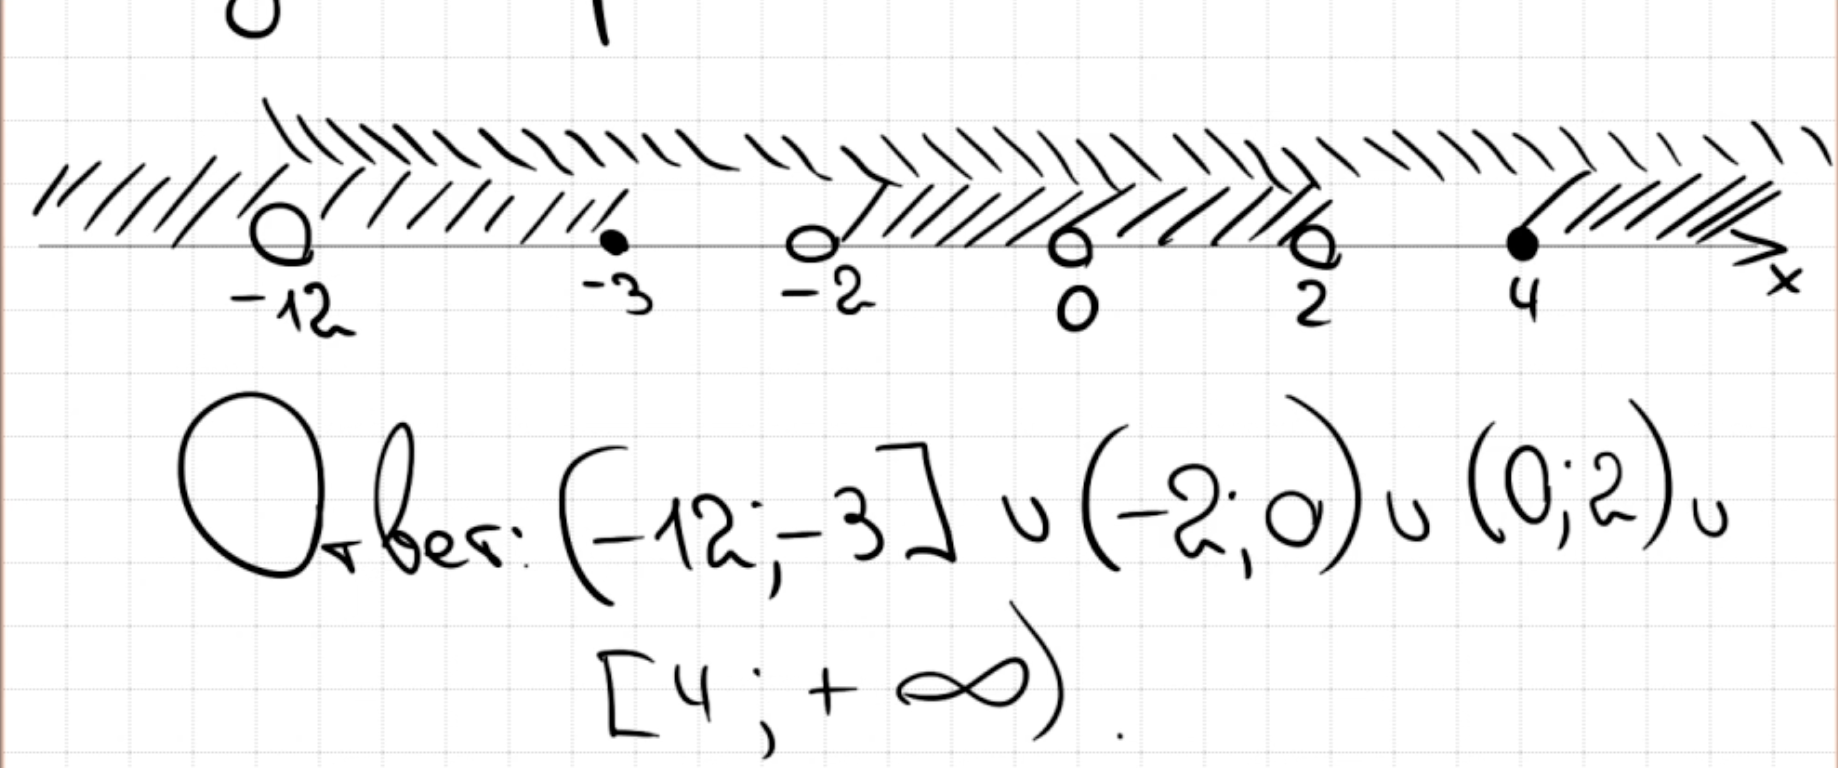 -12 -3 -2 0 2 4 x
Ответ: (-12; -3] ∪ (-2; 0) ∪ (0; 2) ∪
[4; +∞).